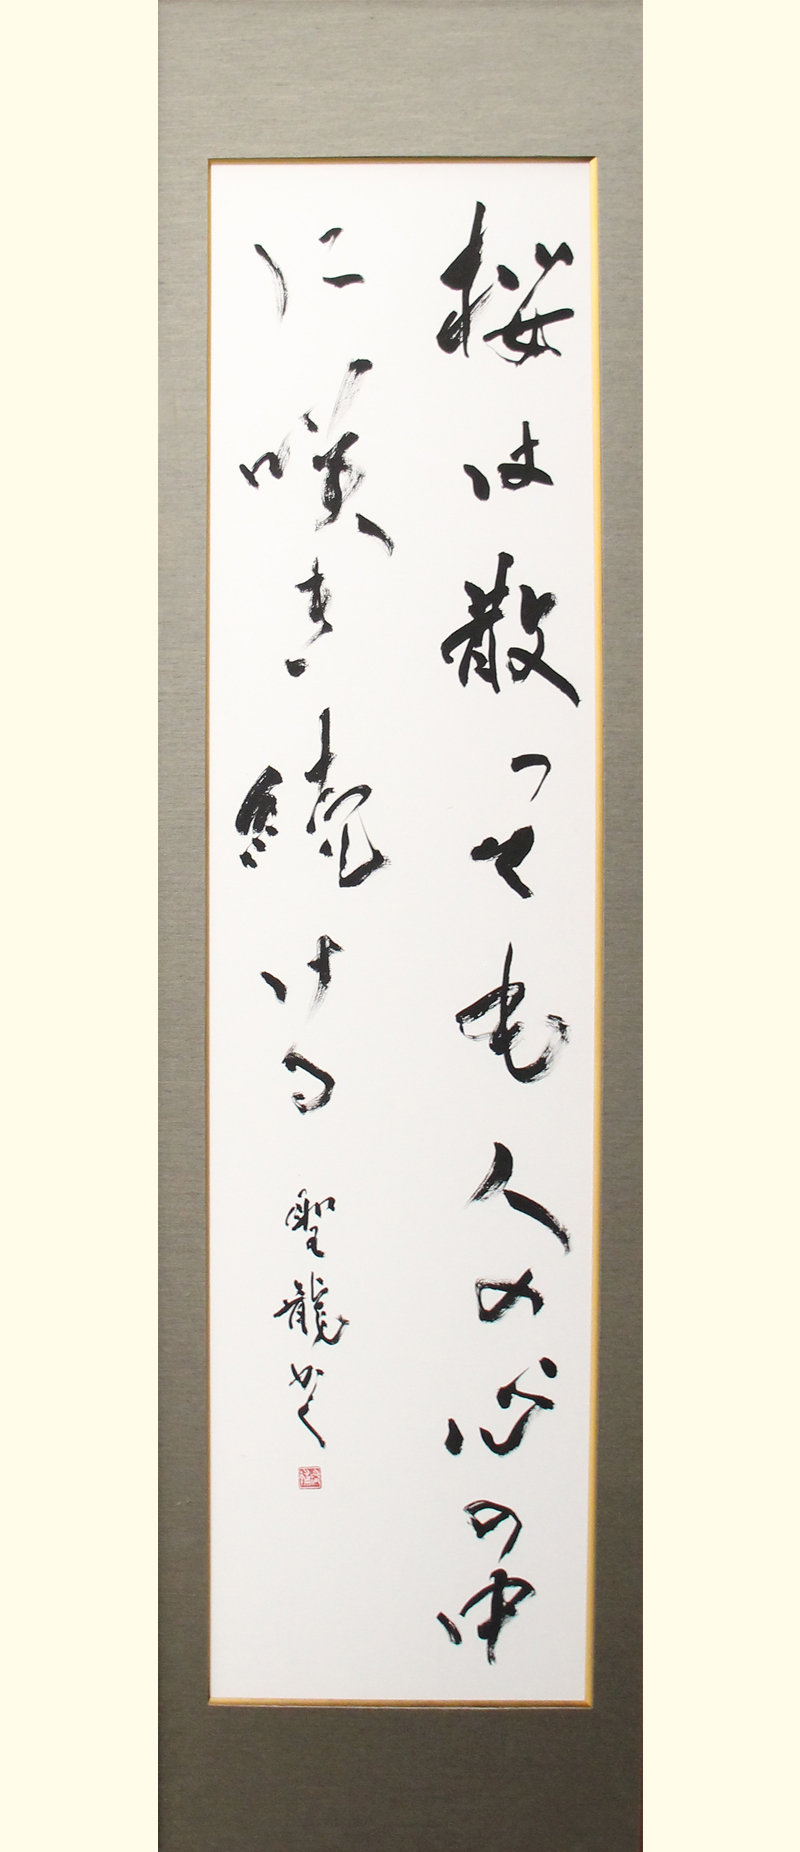 桜は散っても人の心の中
に咲き続ける
聖龍かく